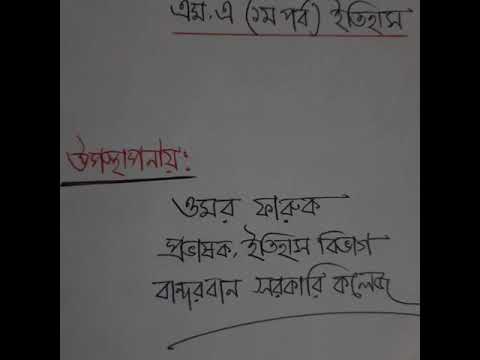 এম.এ (১ম পর্ব) ইতিহাস
উপস্থাপনায়:
ওমর ফারুক
প্রভাষক, ইতিহাস বিভাগ
বান্দরবান সরকারি কলেজ